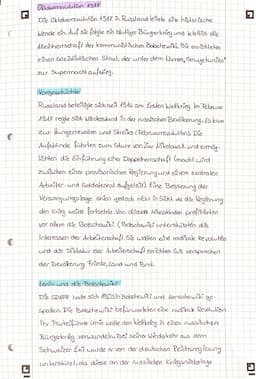 Oktoberrevolution 1917
Die Oktoberrevolution 1917 in Russland leitete eine historische
Wende ein. Auf sie folgte ein blutiger Bürgerkrieg und letztlich die
Alleinherrschaft der kommunistischen Bolschewiki. Sie errichteten
einen sozialistischen Staat, der unter dem Namen "Sowjetunion"
zur Supermacht aufstieg.
Vorgeschichte
Russland beteiligte sich seit 1914 am Ersten Weltkrieg. Im Februar
1917 regte sich Widerstand in der russischen Bevölkerung. Es kam
zur Hungerrevolten und Streiks (Februarrevolution). Die
Aufstände führten zum Sturz von Zar Nikolaus II. und ermög-
lichten die Einführung einer Doppelherrschaft (Macht wird
zwischen einer provisorischen Regierung und einem zentralen
Arbeiter- und Soldatenrat aufgeteilt). Eine Besserung der
Versorgungslage schien jedoch nicht in Sicht, da die Regierung
den Krieg weiter fortsetzte. Von diesen Missständen profitierten
vor allem die Bolschewiki (Bolschewiki unterstützten die
Interessen der Arbeiterschaft. Sie wollten eine radikale Revolution
und die Diktatur der Arbeiterschaft errichten. Sie versprachen
der Bevölkerung Frieden, Land und Brot.
Lenin und die Bolschewiki
Die SDAPR hatte sich in Bolschewiki und Menschewiki ge-
spalten. Die Bolschewiki befürworteten eine radikale Revolution.
Ihr Parteiführer Lenin wollte den Weltkrieg in einen russischen
Bürgerkrieg verwandeln. Bei seiner Wiederkehr aus dem
Schweizer Exil wurde er von der deutschen Reichsregierung
unterstützt, da diese an der russischen Kriegsniederlage